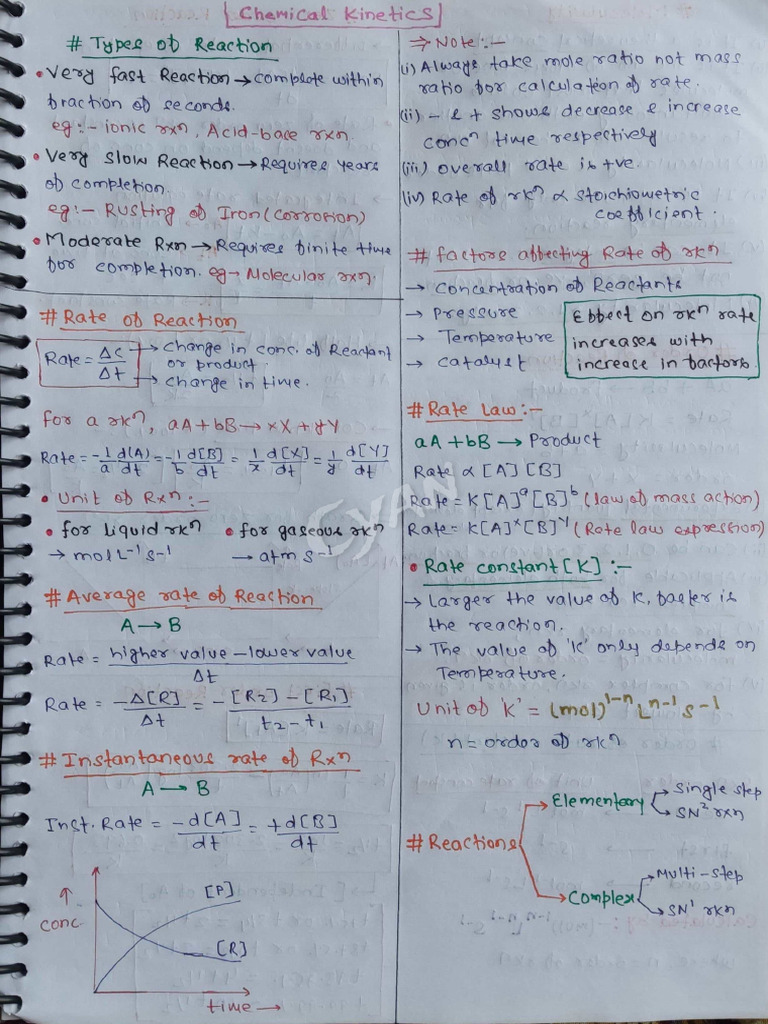 Chemical Kinetics
# Types of Reaction
• Very fast Reaction → complete within
fraction of seconds.
eg:- ionic rxn, Acid-bace rxn.
• Very slow Reaction → Requires years
of completion.
eg:- Rusting of Iron (corrotion)
• Moderate Rxn → Requires finite time
for completion. eg → Molecular rxn.
# Rate of Reaction
Rate = ΔC/Δt → change in conc. of Reactant
or product
→ change in time.
for a rkⁿ, aA + bB → xX + yY
Rate = -1/a d(A)/dt = -1/b d[B]/dt = 1/x d[X]/dt = 1/y d[Y]/dt
• Unit of Rxⁿ:-
• for liquid rkⁿ • for gaseous rkⁿ
→ mol L⁻¹ s⁻¹ → atm s⁻¹
# Average rate of Reaction
A → B
Rate = higher value - lower value / Δt
Rate = -Δ[R]/Δt = -[R₂] - [R₁] / t₂ - t₁
# Instantaneous rate of Rxⁿ
A → B
Inst. Rate = -d[A]/dt = +d[B]/dt
↑
conc.
[P]
[R]
time →
⇒ Note:-
(i) Always take mole ratio not mass
ratio for calculation of rate.
(ii) - & + shows decrease & increase
concⁿ time respectively
(iii) overall rate is +ve.
(iv) Rate of rkⁿ ∝ stoichiometric
coefficient.
# factors affecting Rate of rkⁿ
→ Concentration of Reactants
→ Pressure
→ Temperature
→ catalyst
Effect on rkⁿ rate
increases with
increase in factors.
# Rate Law:-
aA + bB → Product
Rate ∝ [A] [B]
Rate = K[A]ᵃ[B]ᵇ (law of mass action)
Rate = K[A]ˣ[B]ʸ (Rate law expression)
• Rate constant [K]:-
→ Larger the value of K, faster is
the reaction.
→ The value of 'K' only depends on
Temperature.
Unit of K' = (mol)¹⁻ⁿ Lⁿ⁻¹ s⁻¹
n = order of rkⁿ
# Reactions
Elementary → Single step
→ SN² rxn
Complex → Multi-step
→ SN¹ rkn
GYAN